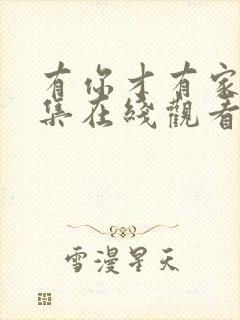 有你才有家
集在綫觀看
雪漫星天